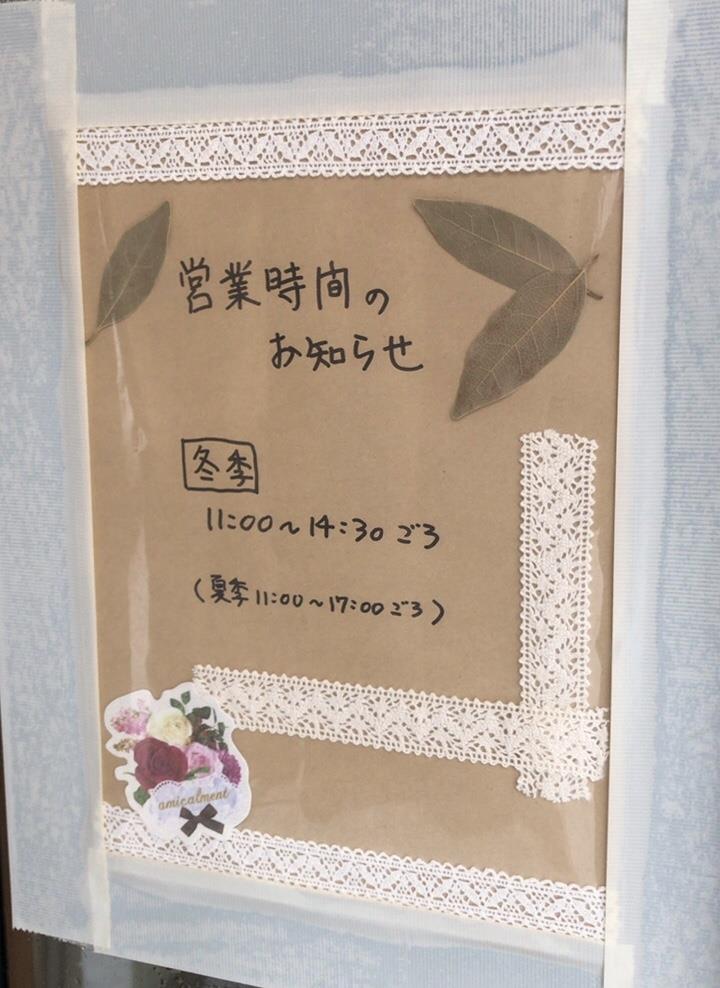 営業時間の
お知らせ
冬季
11:00〜14:30ごろ
(夏季11:00〜17:00ごろ)
amicalment